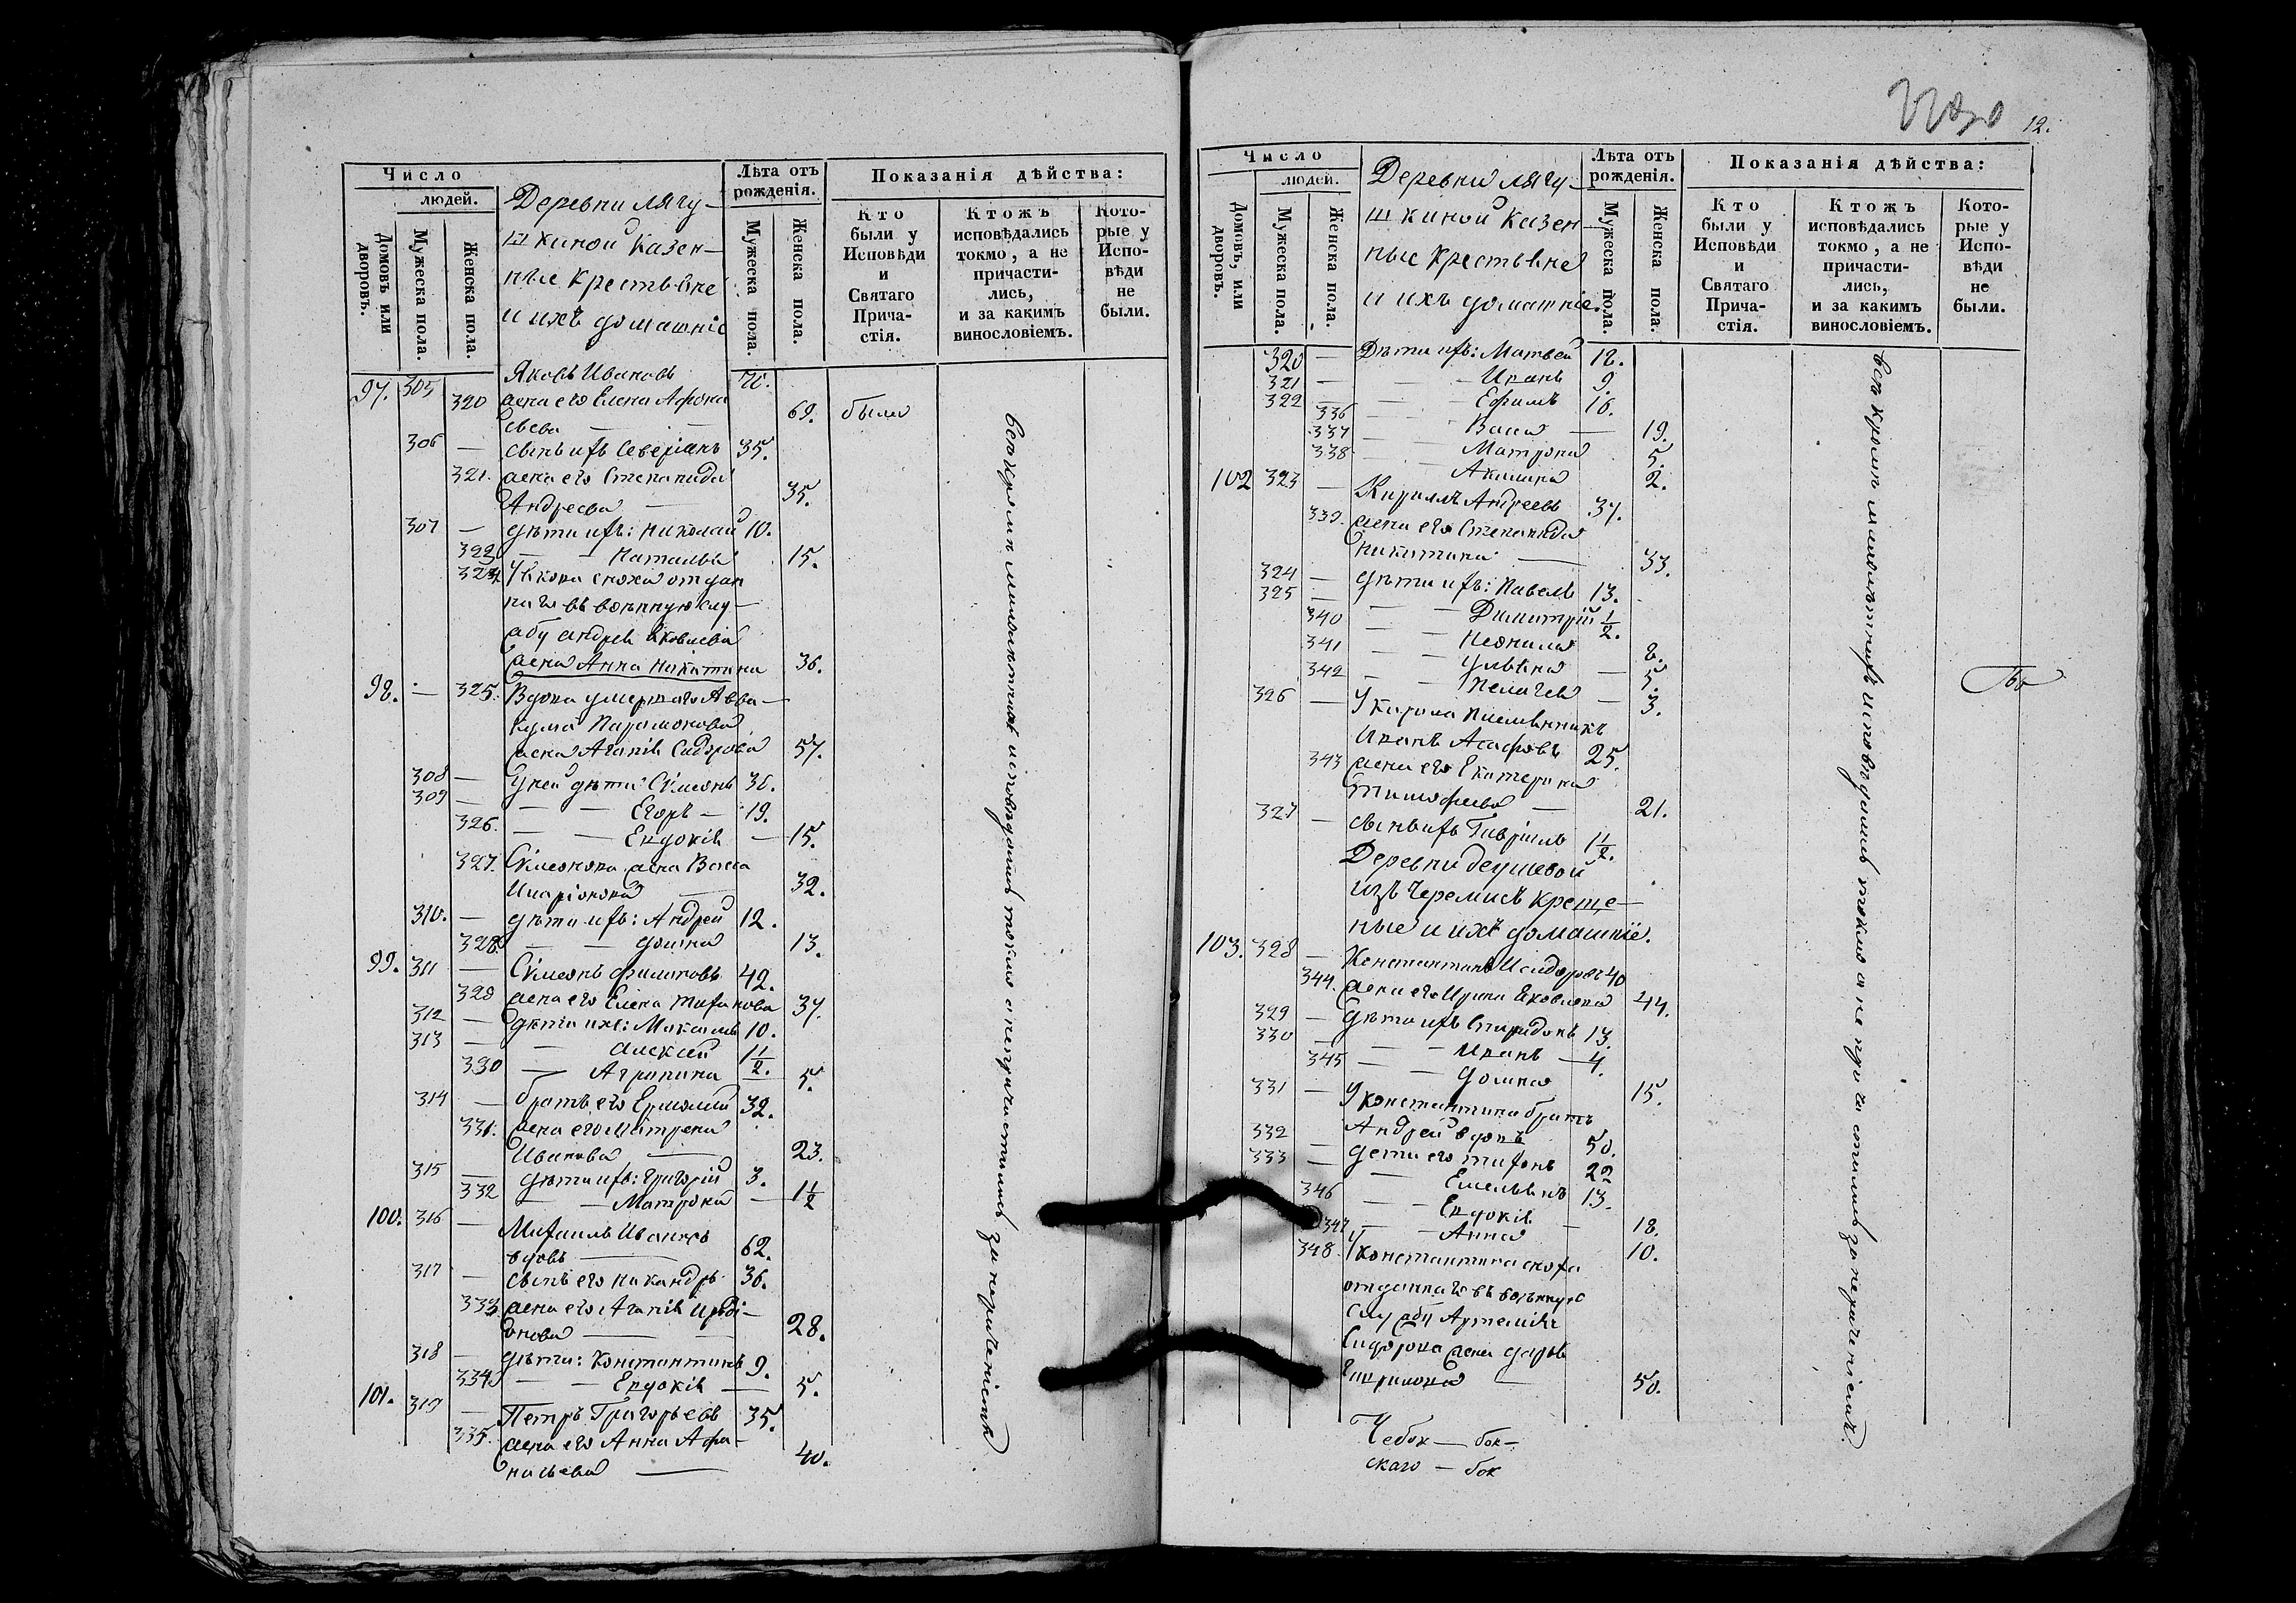 Число
людей.
Домовъ или дворовъ.
Мужеска пола.
Женска пола.
Деревни лягу-
шкиной казен-
ные крестьяне
и ихъ домашніе
Лѣта отъ рожденія.
Мужеска пола.
Женска пола.
Показанія дѣйства:
Кто были у Исповѣди и Святаго Прича-стія.
Ктожъ исповѣдались токмо, а не причасти-лись, и за какимъ винословіемъ.
Кото-рые у Испо-вѣди не были.
97. 305 Яковъ Ивановъ 70.
320 жена его Елена Афона
сьева — 69. были
306 — сынъ ихъ Северіанъ 35.
321. жена его Степанида
Андреева — 35.
307 — дѣти ихъ: Николай 10.
322 — Наталья 15.
324 У Якова сноха отдан
наго въ военную слу-
жбу Андрея Яковлева
жена Анна Никитина 36.
98. — 325. Вдова умершаго Авва-
кума Парамонова
жена Агапія Сидорова 57.
308 — У ней дѣти Сѵмеонъ 30.
309 — Егоръ — 19.
326. — Евдокія — 15.
327. Сѵмеонова жена Васса
Иларіонова 32.
310. — дѣти ихъ: Андрей 12.
328. — Домна 13.
99. 311 — Сѵмеонъ Филиповъ 42.
329 жена его Елена Тихонова 37.
312 — дѣти ихъ: Максимъ 10.
313 — Алексей 1 1/2.
330 — Агрипина 5.
314 — братъ его Ермолай 32.
331. жена его Матрена
Иванова — 23.
315 — дѣти ихъ: Григорій 3.
332 — Матрона — 1 1/2
100. 316 — Михаилъ Ивановъ
вдовъ — 62.
317 — сынъ его Никандръ 36.
333 жена его Агапія Иродi-
онова — 28.
318 — дѣти: Константинъ 9.
334 — Евдокія — 5.
101. 319 — Петръ Григорьевъ 35.
335. жена его Анна Афа-
насьева — 40.
всѣ кромѣ малолѣтныхъ исповѣдались токмо а не причастились за нераченіемъ
12.
Число
людей.
Домовъ, или дворовъ.
Мужеска пола.
Женска пола.
Деревни лягу-
шкиной казен
ные крестьяне
и ихъ домашніе.
Лѣта отъ рожденія.
Мужеска пола.
Женска пола.
Показанія дѣйства:
Кто были у Исповѣди и Святаго Прича-стія.
Ктожъ исповѣдались токмо, а не причасти-лись, и за какимъ винословіемъ.
Кото-рые у Испо-вѣди не были.
320 — Дѣти ихъ: Матвей 12.
321 — Иванъ 9.
322 — Ефимъ 16.
336 — Васса — 19.
337 — Матрона 5.
338 — Акилина 2.
102 323 — Кирилъ Андреевъ 37.
339. жена его Степанида
Никитина — 33.
324 — дѣти ихъ: Павелъ 13.
325 — Димитрій 1/2.
340 — Неонила 8.
341 — Ульяна — 5.
342 — Пелагея — 3.
326 — У Кирила племянникъ
Иванъ Асафовъ 25.
343 жена его Екатерина
Тимофеева — 21.
327 — сынъ ихъ Гавріилъ 1 1/2.
Деревни
изъ Черемисъ креще-
ные и ихъ домашніе.
103. 328 — Константинъ Исидоровъ 40
344. жена его Ирина Яковлева 44.
329 — дѣти ихъ Спиридонъ 13.
330 — Иванъ — 4.
345 — Домна 15.
331 — У Константина братъ
Андрей вдовъ 50.
332 — дети его Тихонъ 22
333 — Емельянъ 13.
346 — Евдокія — 18.
347 — Анна 10.
348. У Константина сноха
отданнаго въ военную
службу Артемія
Сидорова жена Дарья
Гаврилова — 50.
всѣ кромѣ малолѣтныхъ исповѣдались токмо а не причастились за нераченіемъ.
Чебок — бок-
скаго — бок